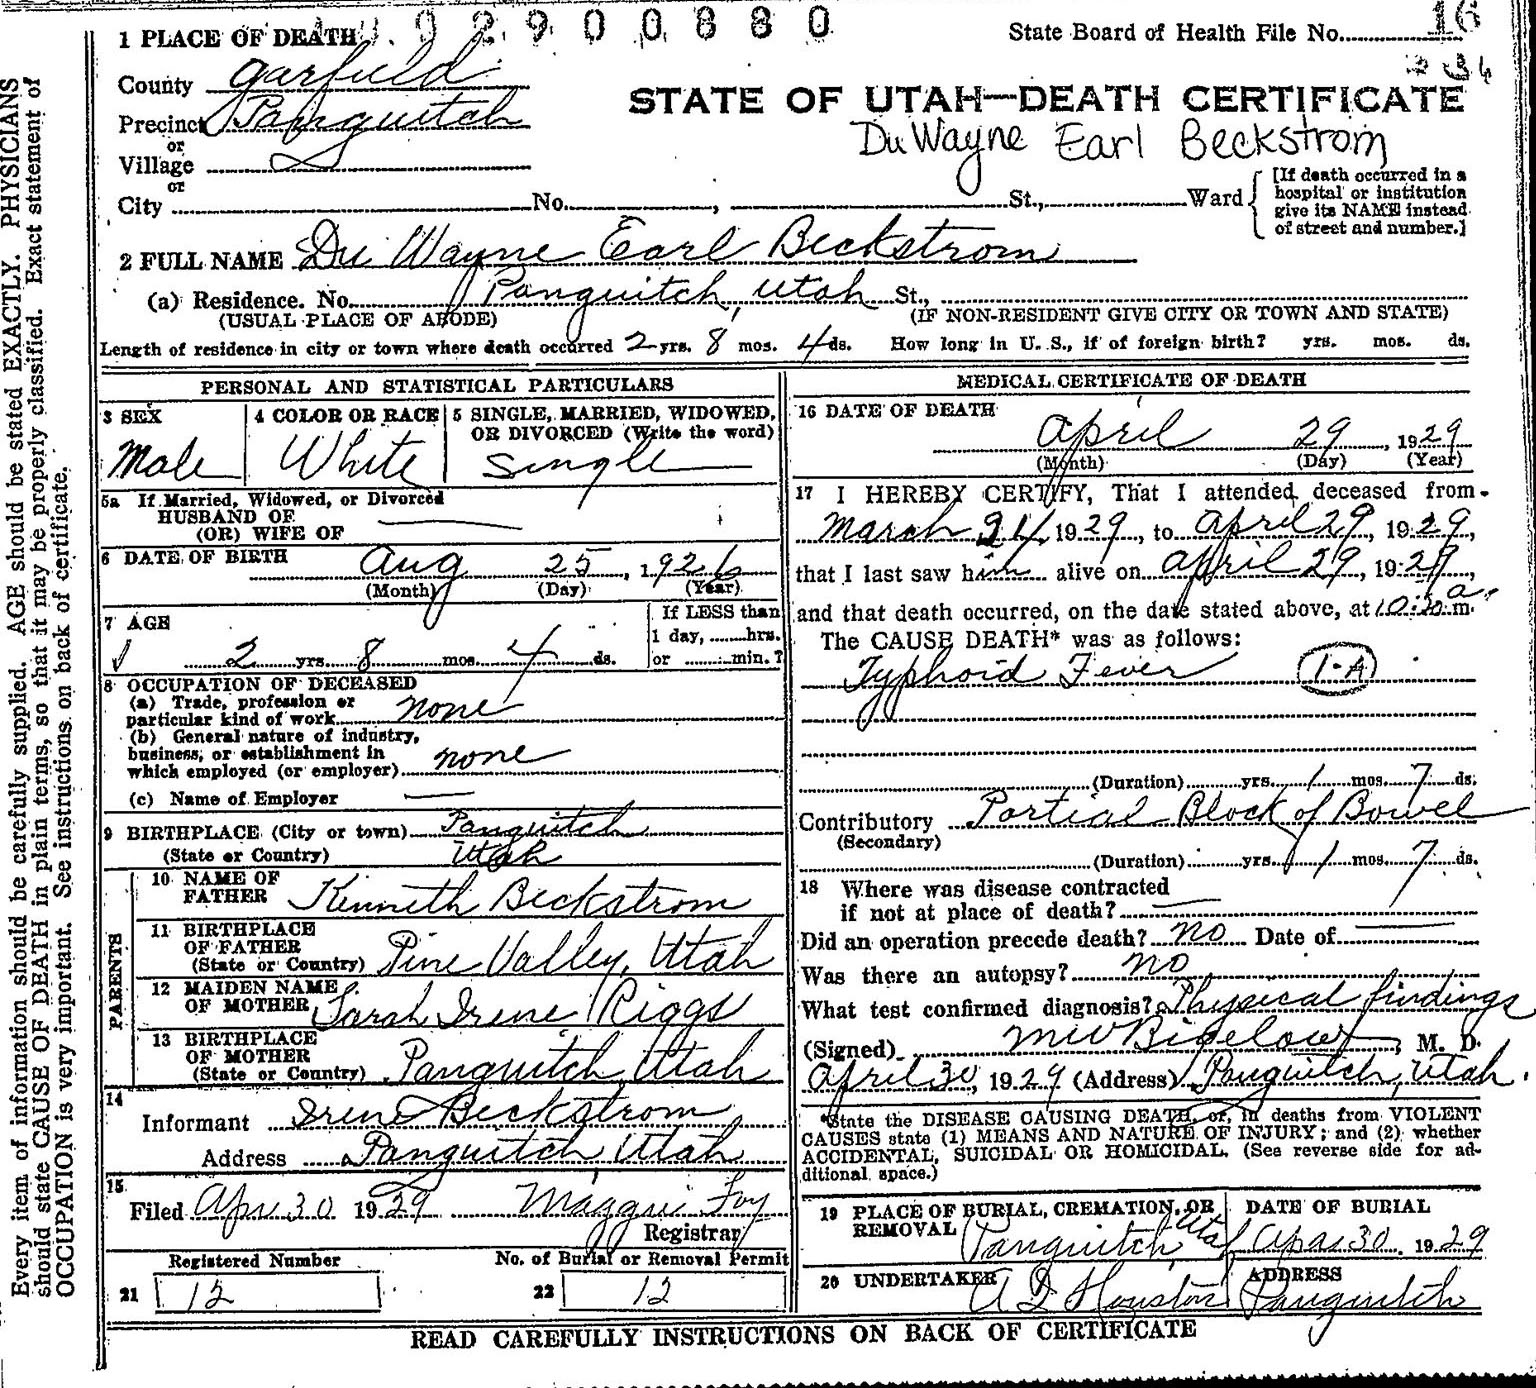 1 PLACE OF DEATH 2900880
State Board of Health File No. 16
County Garfield
Precinct Panguitch
or
Village
or
City No. , St., Ward
STATE OF UTAH—DEATH CERTIFICATE
DuWayne Earl Beckstrom
[If death occurred in a
hospital or institution
give its NAME instead
of street and number.]
2 FULL NAME Du Wayne Earl Beckstrom
(a) Residence. No. Panguitch, Utah St.,
(USUAL PLACE OF ABODE) (IF NON-RESIDENT GIVE CITY OR TOWN AND STATE)
Length of residence in city or town where death occurred 2 yrs. 8 mos. 4 ds. How long in U. S., if of foreign birth? yrs. mos. ds.
PERSONAL AND STATISTICAL PARTICULARS
3 SEX
Male
4 COLOR OR RACE
White
5 SINGLE, MARRIED, WIDOWED,
OR DIVORCED (Write the word)
Single
5a If Married, Widowed, or Divorced
HUSBAND OF
(OR) WIFE OF
6 DATE OF BIRTH Aug 25, 1926
(Month) (Day) (Year)
7 AGE
2 yrs. 8 mos. 4 ds.
If LESS than
1 day, hrs.
or min.?
8 OCCUPATION OF DECEASED
(a) Trade, profession or
particular kind of work none
(b) General nature of industry,
business, or establishment in
which employed (or employer) none
(c) Name of Employer
9 BIRTHPLACE (City or town) Panguitch
(State or Country) Utah
PARENTS
10 NAME OF
FATHER Kenneth Beckstrom
11 BIRTHPLACE
OF FATHER
(State or Country) Pine Valley, Utah
12 MAIDEN NAME
OF MOTHER Sarah Irene Riggs
13 BIRTHPLACE
OF MOTHER
(State or Country) Panguitch, Utah
14
Informant Irene Beckstrom
Address Panguitch, Utah
15
Filed Apr 30 1929 Maggie Foy
Registrar
Registered Number
21 12
No. of Burial or Removal Permit
22 12
MEDICAL CERTIFICATE OF DEATH
16 DATE OF DEATH
April 29, 1929
(Month) (Day) (Year)
17 I HEREBY CERTIFY, That I attended deceased from
March 21, 1929, to April 29, 1929,
that I last saw him alive on April 29, 1929,
and that death occurred, on the date stated above, at 10:30 a m.
The CAUSE DEATH* was as follows:
Typhoid Fever 1-A
(Duration) yrs. 1 mos. 7 ds.
Contributory Partial Block of Bowel
(Secondary)
(Duration) yrs. 1 mos. 7 ds.
18 Where was disease contracted
if not at place of death?
Did an operation precede death? no Date of
Was there an autopsy? no
What test confirmed diagnosis? Physical findings
(Signed) MW Bigelow, M. D.
April 30, 1929 (Address) Panguitch, Utah.
*State the DISEASE CAUSING DEATH, or, in deaths from VIOLENT
CAUSES state (1) MEANS AND NATURE OF INJURY; and (2) whether
ACCIDENTAL, SUICIDAL OR HOMICIDAL. (See reverse side for ad-
ditional space.)
19 PLACE OF BURIAL, CREMATION, OR
REMOVAL Panguitch Utah
DATE OF BURIAL
Apr 30, 1929
20 UNDERTAKER A D Houston
ADDRESS
Panguitch
READ CAREFULLY INSTRUCTIONS ON BACK OF CERTIFICATE
Every item of information should be carefully supplied. AGE should be stated EXACTLY. PHYSICIANS
should state CAUSE OF DEATH in plain terms, so that it may be properly classified. Exact statement of
OCCUPATION is very important. See instructions on back of certificate.